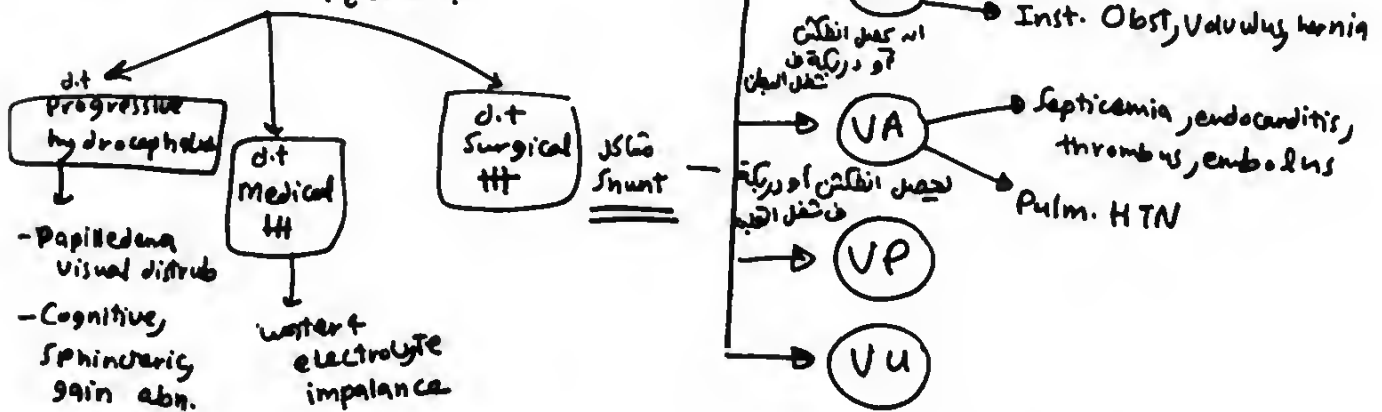 d.t
progressive
hydrocephalus
- Papilledema
visual distrub
- Cognitive,
Sphincteric,
gain abn.
d.t
Medical
ttt
water &
electrolyte
impalance
d.t
Surgical
ttt
مشاكل
Shunt
Inst. Obst, Volvulus, hernia
انفكشن
أو دربكة ف
شغل البطن
VA
Septicemia, endocarditis,
thrombus, embolus
Pulm. HTN
يحصل انفكشن أو دربكة
ف شغل القلب
VP
VU